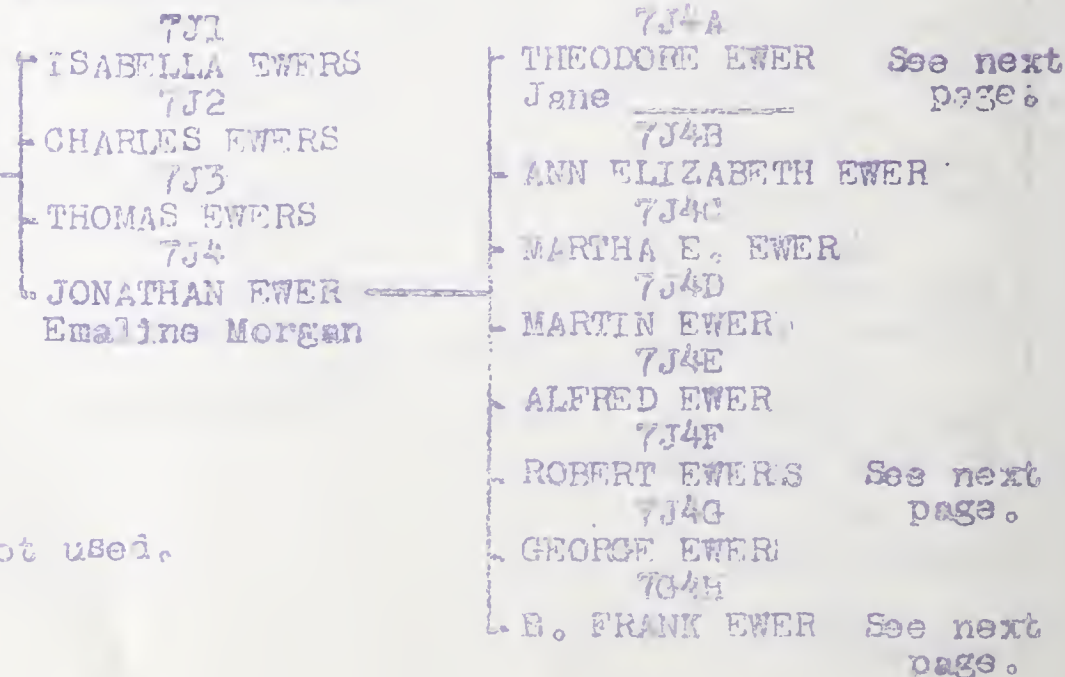 7J1
ISABELLA EWERS
7J2
CHARLES EWERS
7J3
THOMAS EWERS
7J4
JONATHAN EWER
Emaline Morgan
ot used.
7J4A
THEODORE EWER See next
Jane page.
7J4B
ANN ELIZABETH EWER
7J4C
MARTHA E. EWER
7J4D
MARTIN EWER
7J4E
ALFRED EWER
7J4F
ROBERT EWERS See next
7J4G page.
GEORGE EWER
7G4H
B. FRANK EWER See next
page.